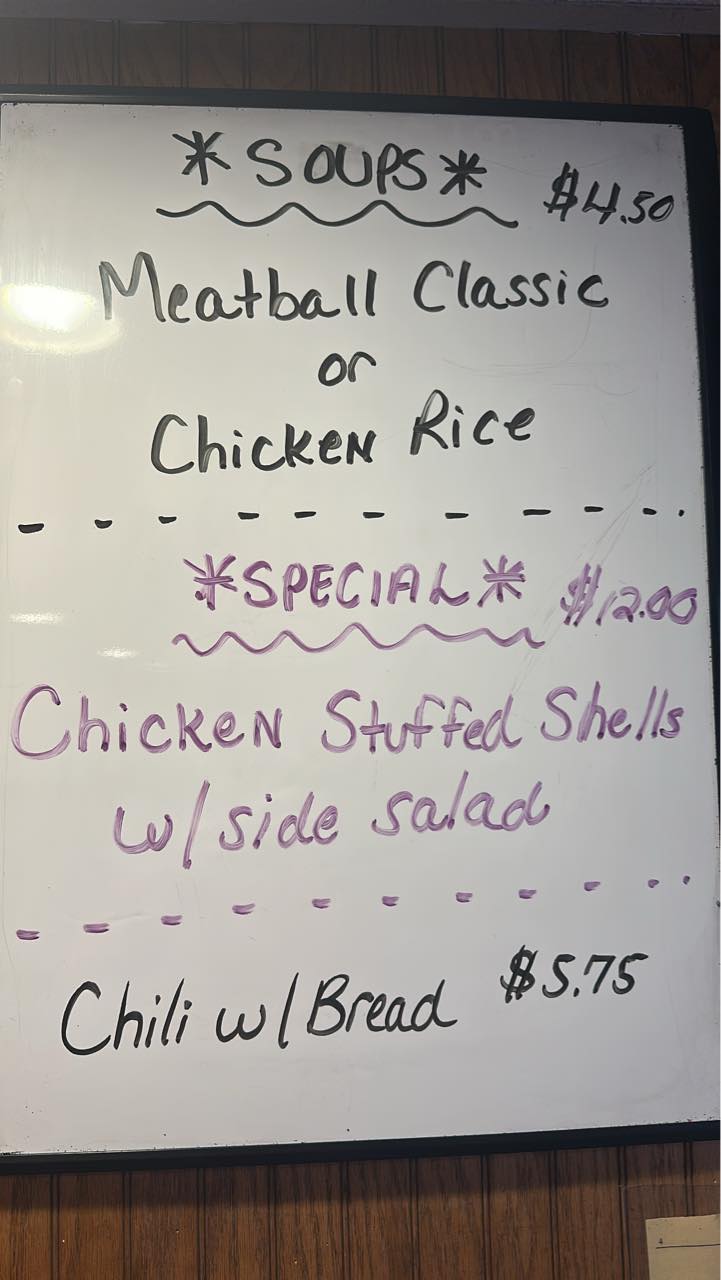 *SOUPS* $4.50
Meatball Classic
or
Chicken Rice
*SPECIAL* $12.00
Chicken Stuffed Shells
w/ side salad
Chili w/ Bread $5.75